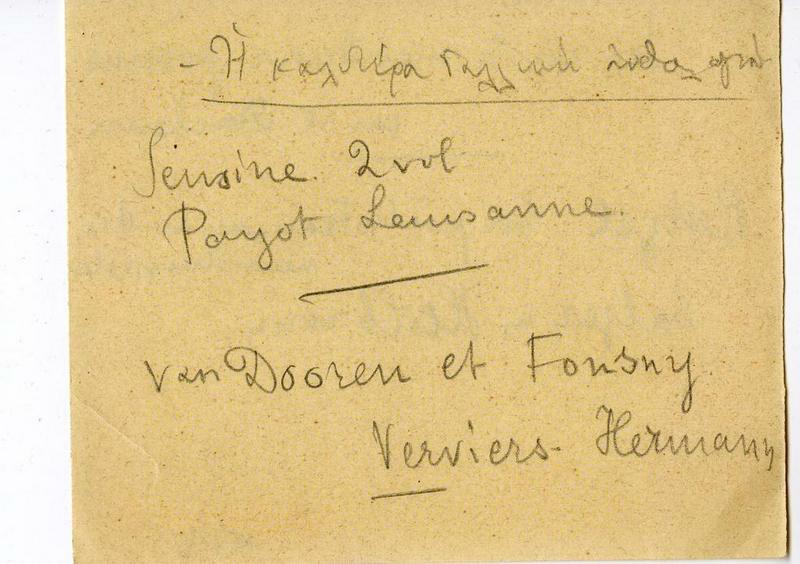 - Ἡ καλυτέρα Γαλλική ἀνθολογία
Sensine. 2 vol
Payot Leusanne.
van Dooren et Fonsny
Verviers - Hermann